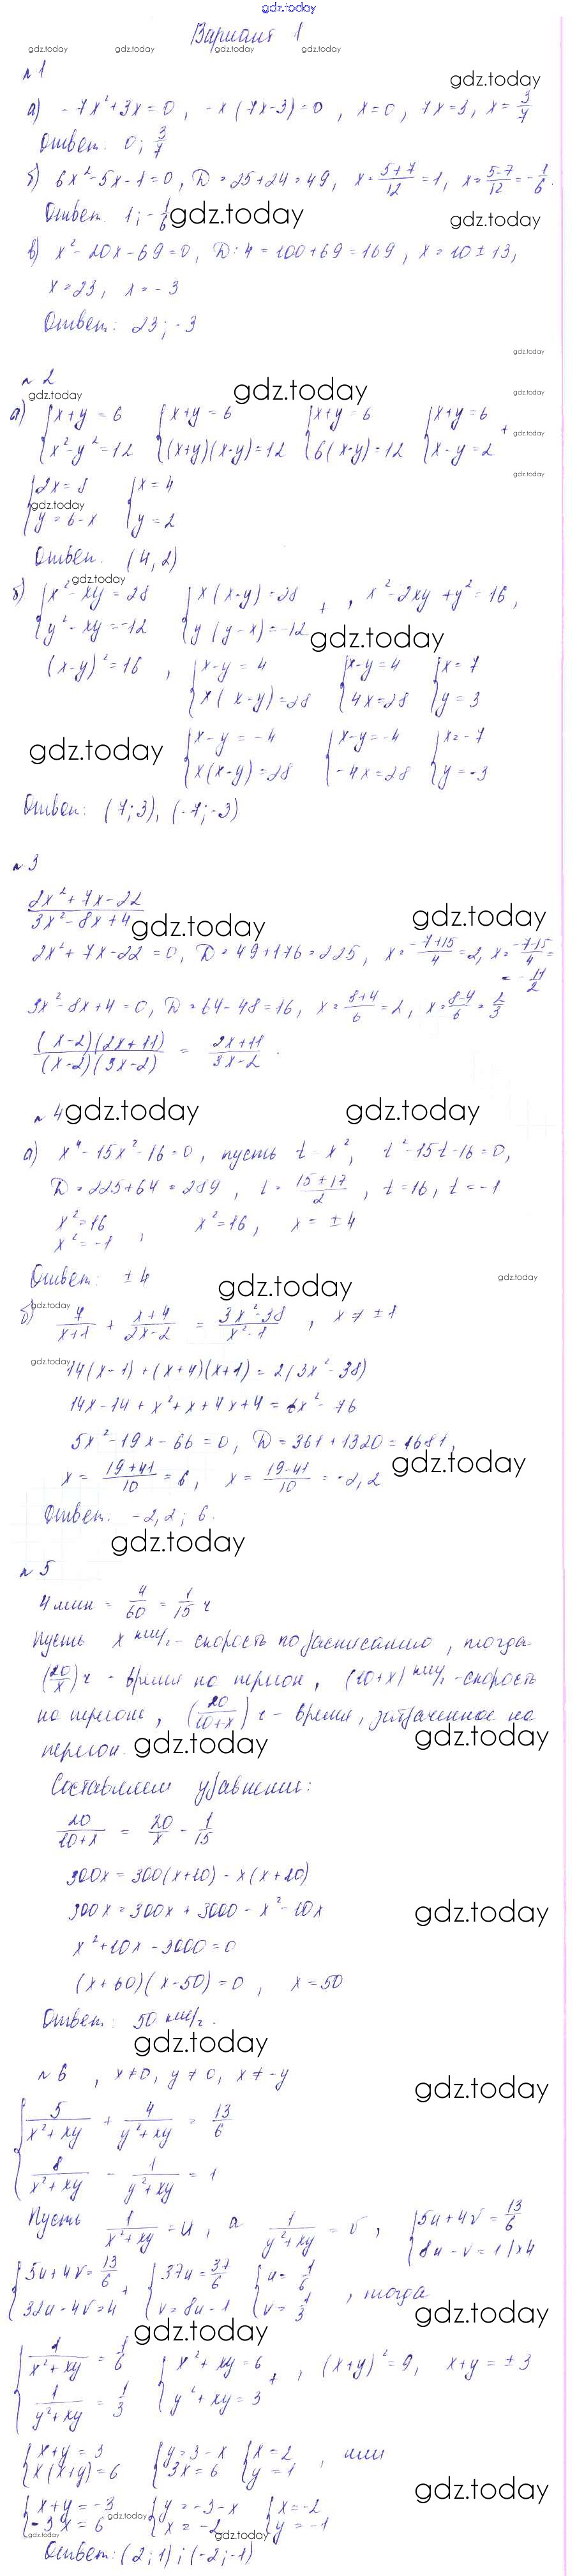 gdz.today
Вариант 1
gdz.today gdz.today gdz.today gdz.today
№1 gdz.today
а) -7x²+3x=0, -x(7x-3)=0, x=0, 7x=3, x=3/7
Ответ: 0; 3/7
б) 6x²-5x-1=0, D=25+24=49, x=(5+7)/12=1, x=(5-7)/12=-1/6.
Ответ: 1; -1/6 gdz.today gdz.today
в) x²-20x-69=0, D:4=100+69=169, x=10±13,
x=23, x=-3
Ответ: 23; -3
gdz.today
№2
gdz.today gdz.today gdz.today
а) {x+y=6 {x+y=6 {x+y=6 {x+y=6 +
{x²-y²=12 {(x+y)(x-y)=12 {6(x-y)=12 {x-y=2 gdz.today
gdz.today
{2x=8 {x=4
gdz.today
{y=6-x {y=2
Ответ: (4,2)
gdz.today
б) {x²-xy=28 {x(x-y)=28 +, x²-2xy+y²=16,
{y²-xy=-12 {y(y-x)=-12 gdz.today
(x-y)²=16, {x-y=4 {x-y=4 {x=7
{x(x-y)=28 {4x=28 {y=3
gdz.today {x-y=-4 {x-y=-4 {x=-7
{x(x-y)=28 {-4x=28 {y=-3
Ответ: (7;3), (-7;-3)
№3
(2x²+7x-22)/(3x²-8x+4) gdz.today gdz.today
2x²+7x-22=0, D=49+176=225, x=(-7+15)/4=2, x=(-7-15)/4=
=-11/2
3x²-8x+4=0, D=64-48=16, x=(8+4)/6=2, x=(8-4)/6=2/3
((x-2)(2x+11))/((x-2)(3x-2)) = (2x+11)/(3x-2).
№4 gdz.today gdz.today
а) x⁴-15x²-16=0, пусть t=x², t²-15t-16=0,
D=225+64=289, t=(15±17)/2, t=16, t=-1
x²=16 x²=16, x=±4
x²=-1,
Ответ: ±4
gdz.today gdz.today
gdz.today
б) 7/(x+1) + (x+4)/(2x-2) = (3x²-38)/(x²-1), x≠±1
gdz.today 14(x-1)+(x+4)(x+1)=2(3x²-38)
14x-14+x²+x+4x+4=6x²-76
5x²-19x-66=0, D=361+1320=1681,
x=(19+41)/10=6, x=(19-41)/10=-2,2 gdz.today
Ответ: -2,2; 6.
gdz.today
№5
4 мин = 4/60 = 1/15 ч
Пусть x км/ч - скорость по расписанию, тогда
(20/x) ч - время на перегон, (10+x) км/ч - скорость
на перегоне, (20/(10+x)) ч - время, затраченное на
перегон. gdz.today gdz.today
Составляем уравнение:
20/(10+x) = 20/x - 1/15
300x=300(x+10)-x(x+10)
300x=300x+3000-x²-10x gdz.today
x²+10x-3000=0
(x+60)(x-50)=0, x=50
Ответ: 50 км/ч.
gdz.today
№6, x≠0, y≠0, x≠-y gdz.today
{5/(x²+xy) + 4/(y²+xy) = 13/6
{8/(x²+xy) - 1/(y²+xy) = 1
Пусть 1/(x²+xy)=u, а 1/(y²+xy)=v, {5u+4v=13/6
{8u-v=1 |×4
{5u+4v=13/6 + {37u=37/6 {u=1/6, тогда
{32u-4v=4 {v=8u-1 {v=1/3
gdz.today gdz.today
{1/(x²+xy)=1/6 {x²+xy=6 +, (x+y)²=9, x+y=±3
{1/(y²+xy)=1/3 {y²+xy=3
{x+y=3 {y=3-x {x=2, или
{x(x+y)=6 {3x=6 {y=1
gdz.today
{x+y=-3 {y=-3-x {x=-2
gdz.today
{-3x=6 {x=-2 {y=-1
gdz.today gdz.today
Ответ: (2;1); (-2;-1)